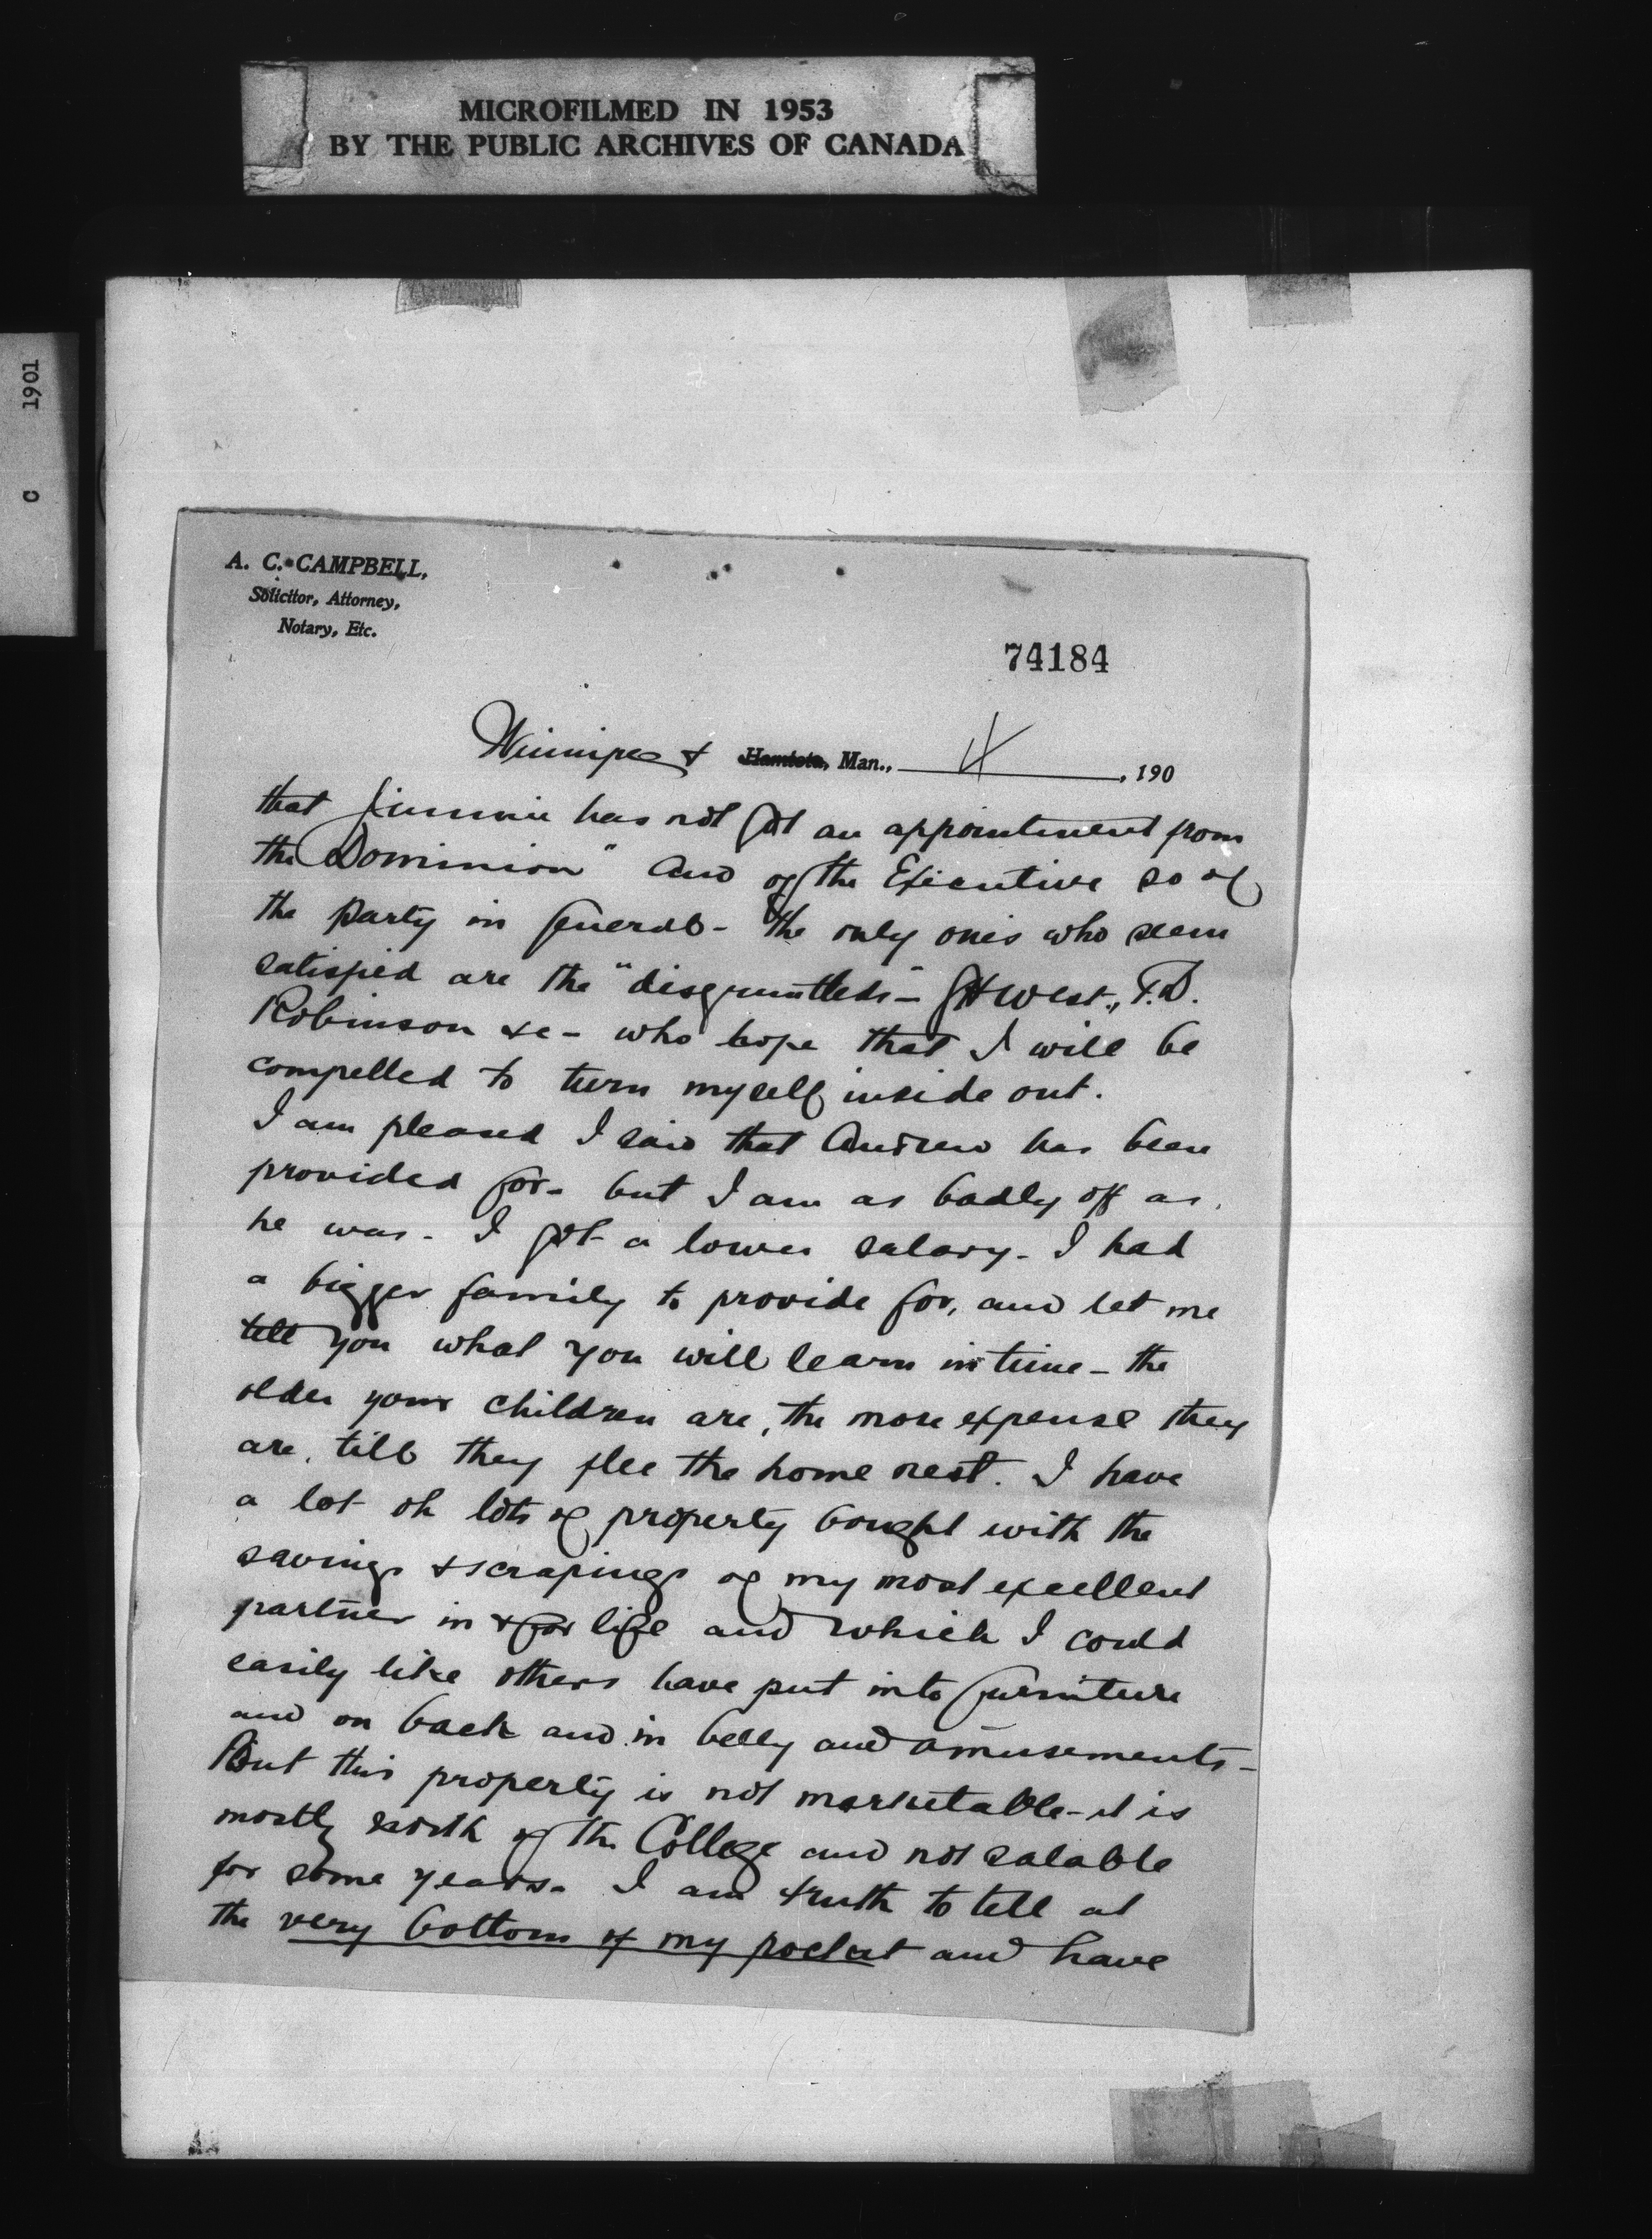 MICROFILMED IN 1953
BY THE PUBLIC ARCHIVES OF CANADA
C 1901
A. C. CAMPBELL,
Solicitor, Attorney,
Notary, Etc.
74184
Winnipeg & Hamiota, Man., 4 , 190
that Jimmie has not got an appointment from
the Dominion" and of the Executive so of
the party in general - the only ones who seem
satisfied are the "disgruntleds"- West., T.D.
Robinson &c - who hope that I will be
compelled to turn myself inside out.
I am pleased I said that Andrew has been
provided for - but I am as badly off as
he was - I got a lower salary - I had
a bigger family to provide for, and let me
tell you what you will learn in time - the
older your children are, the more expense they
are, till they flee the home nest. I have
a lot oh lots of property bought with the
savings & scrapings of my most excellent
partner in & for life and which I could
easily like others have put into furniture
and on back and in belly and amusements -
But this property is not marketable - it is
mostly north of the College and not salable
for some years - I am truth to tell at
the very bottom of my pocket and have